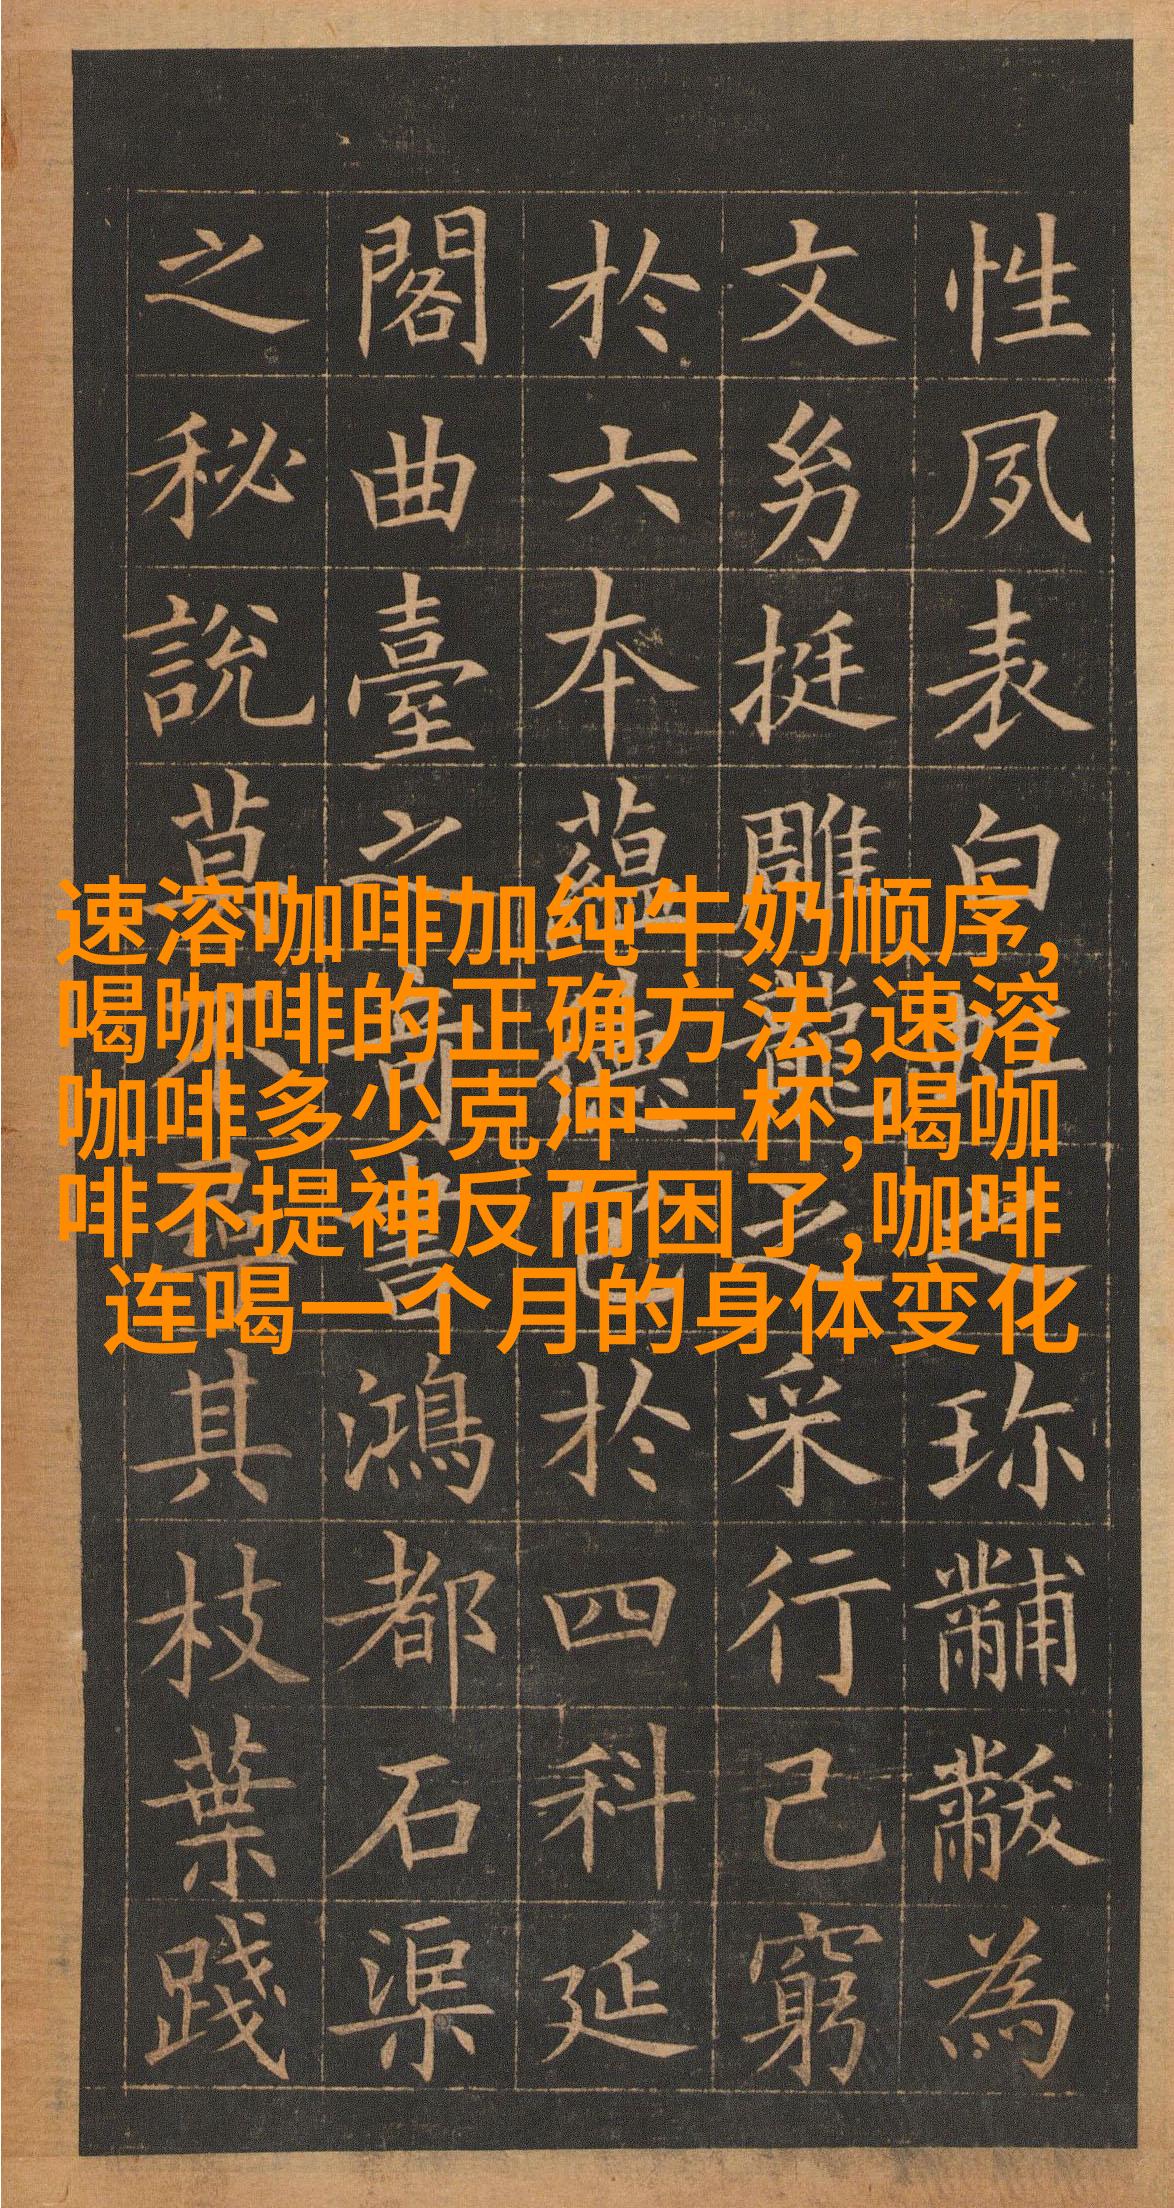 性夙表自之珍黼黻為
文幼挺雕龍之采行己窮
於六本蘊德包於四科延
閣曲臺之奇書鴻都石渠
之秘說莫不尋其枝葉踐
速溶咖啡加纯牛奶顺序,
喝咖啡的正确方法,速溶
咖啡多少克冲一杯,喝咖
啡不提神反而困了,咖啡
连喝一个月的身体变化